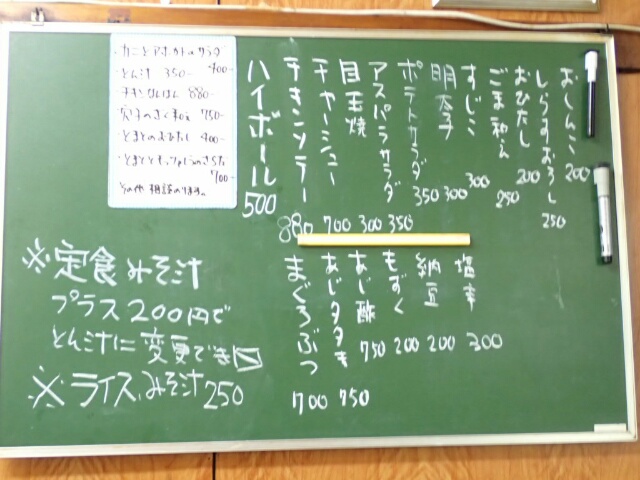 おしんこ 200
しらすおろし 250
おひたし 200
ごま和え 250
すじこ 300
明太子 300
ポテトサラダ 350
アスパラサラダ 350
目玉焼 300
チャーシュー 700
チキンソテー 880
ハイボール 500
塩辛 300
納豆 200
もずく 200
あじ酢 750
あじタタキ 750
まぐろぶつ 700
カニとアボカドのサラダ
400-
とん汁 350-
チキンなんばん 880-
穴子のさく和え 750-
とまとのおひたし 400-
700-
その他 相談のります。
※定食みそ汁
プラス200円で
とん汁に変更できます
※ライス、みそ汁 250